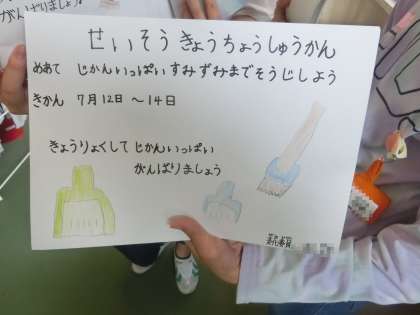 がんばりましょう
せいそうきょうちょうしゅうかん
めあて じかんいっぱいすみずみまでそうじしよう
きかん 7月12日 ～14日
きょうりょくして じかんいっぱい
がんばりましょう
美化委員